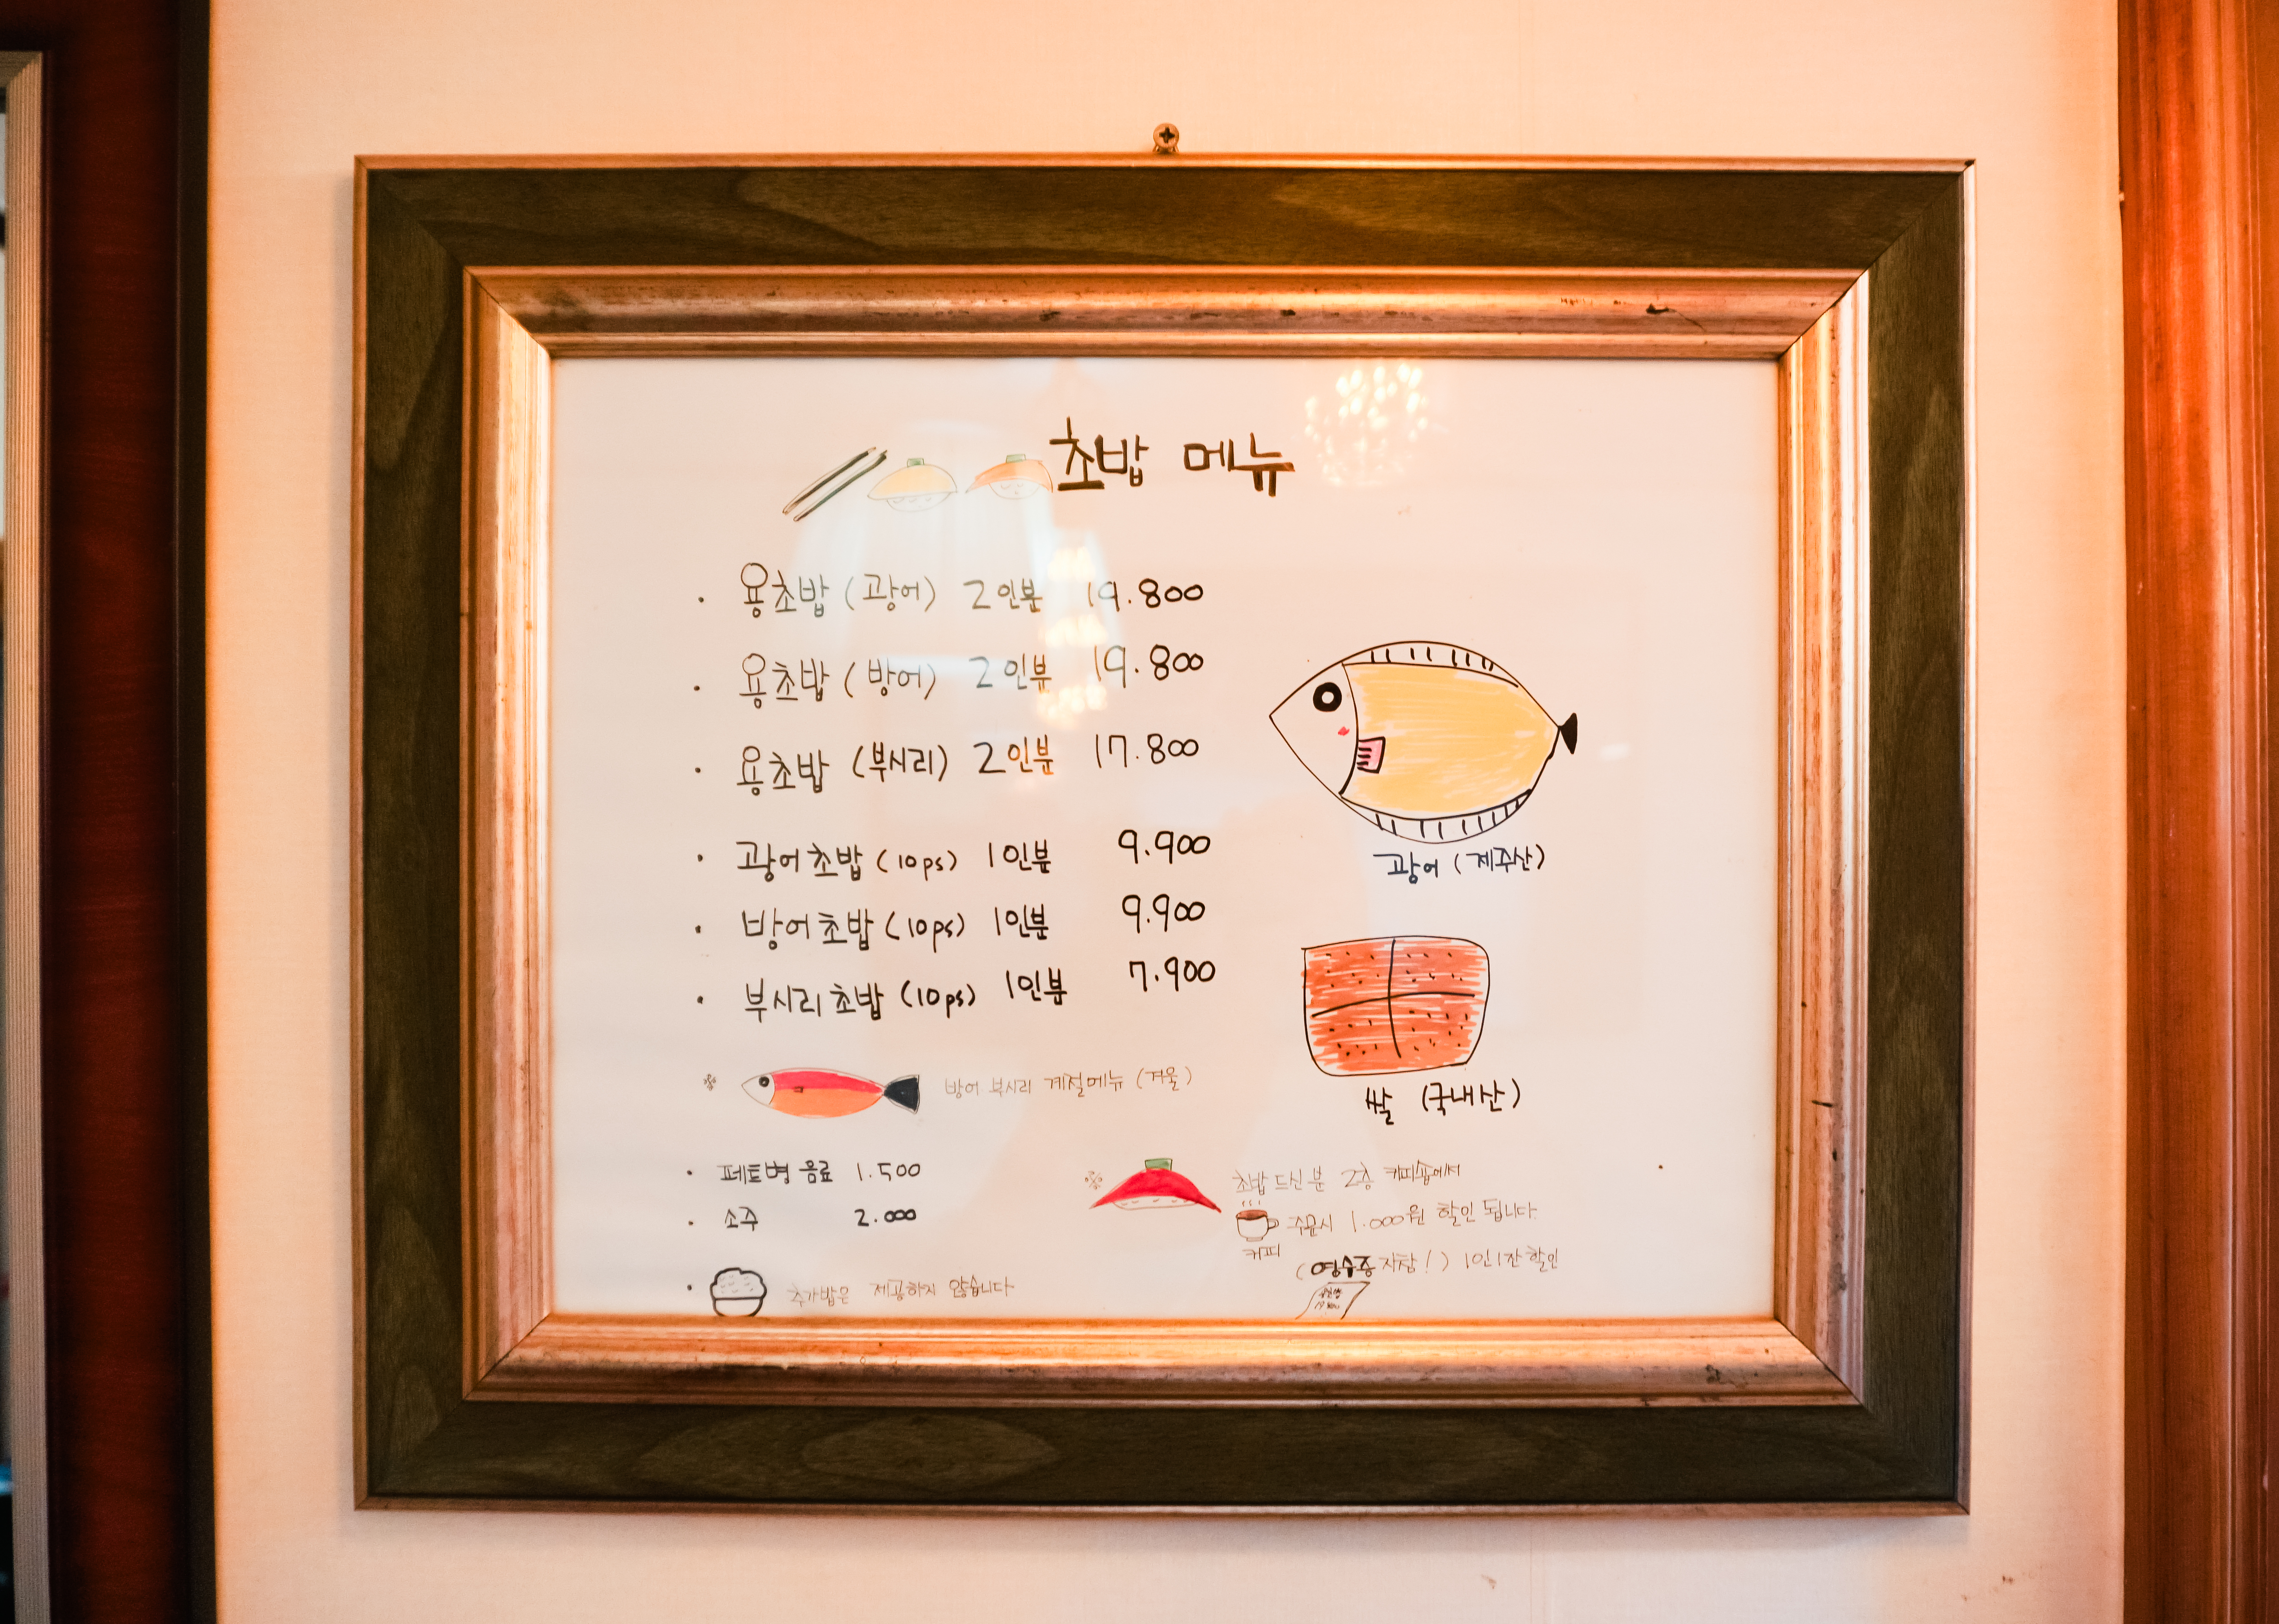 초밥 메뉴
· 용초밥 (광어) 2인분 19.800
· 용초밥 (방어) 2인분 19.800
· 용초밥 (부시리) 2인분 17.800
· 광어초밥 (10ps) 1인분 9.900
· 방어초밥 (10ps) 1인분 9.900
· 부시리초밥 (10ps) 1인분 7.900
광어 (제주산)
쌀 (국내산)
※ 방어 부시리 계절메뉴 (겨울)
· 페트병 음료 1.500
· 소주 2.000
· 추가밥은 제공하지 않습니다
※ 초밥 드신 분 2층 커피숍에서
주문시 1.000원 할인 됩니다.
커피
(영수증 지참!) 1인1잔 할인